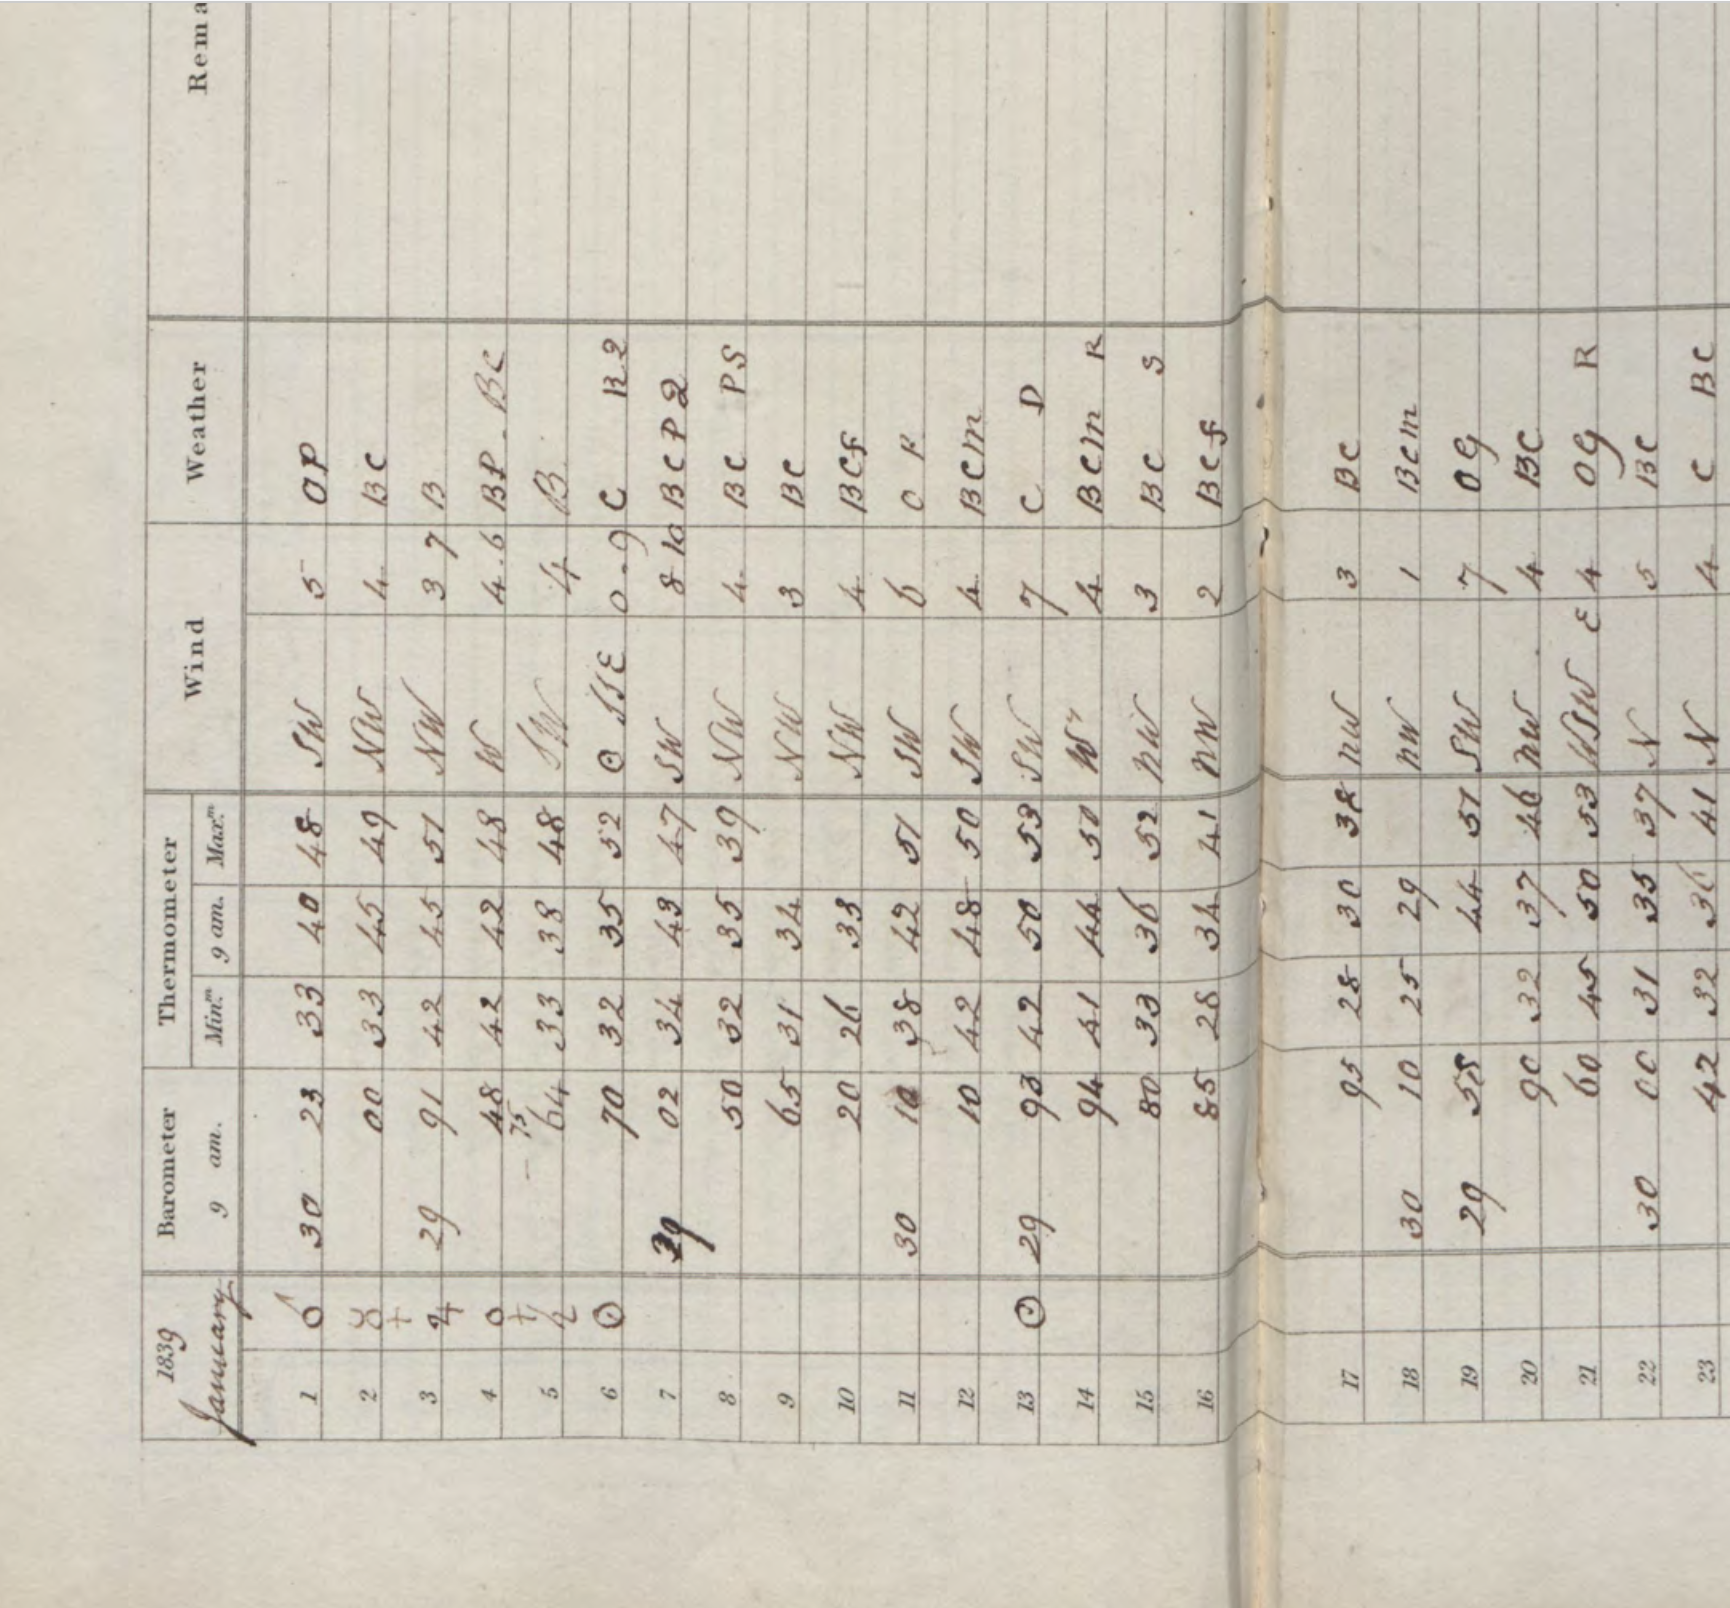 1839 January Barometer 9 am. Thermometer Min.m 9 am. Max.m Wind Weather Rema
1 ♂ 30 23 33 40 48 SW 5 OP
2 ☿ 00 33 45 49 NW 4 BC
3 ♃ 29 91 42 45 51 NW 3 7 B
4 ♀ 48 42 42 48 W 4.6 BP. BC
5 ♄ 75 64 33 38 48 SW 4 B
6 ☉ 70 32 35 52 O SSE 0.9 C R2
7 29 02 34 43 47 SW 8 10 BCPQ
8 50 32 35 39 NW 4 BC PS
9 65 31 34 NW 3 BC
10 20 26 33 NW 4 BCf
11 30 10 38 42 51 SW 6 C
12 10 42 48 50 SW 4 BCm
13 ☉ 29 93 42 50 53 SW 7 C D
14 94 41 44 50 W 4 BCm R
15 80 33 36 52 NW 3 BC S
16 85 28 34 41 NW 2 BCf
17 95 28 30 38 NW 3 BC
18 30 10 25 29 NW 1 BCm
19 29 44 51 SW 7 OG
20 90 32 37 46 NW 4 BC
21 60 45 50 53 WSW E 4 OG R
22 30 00 31 35 37 N 5 BC
23 42 32 36 41 N 4 C BC